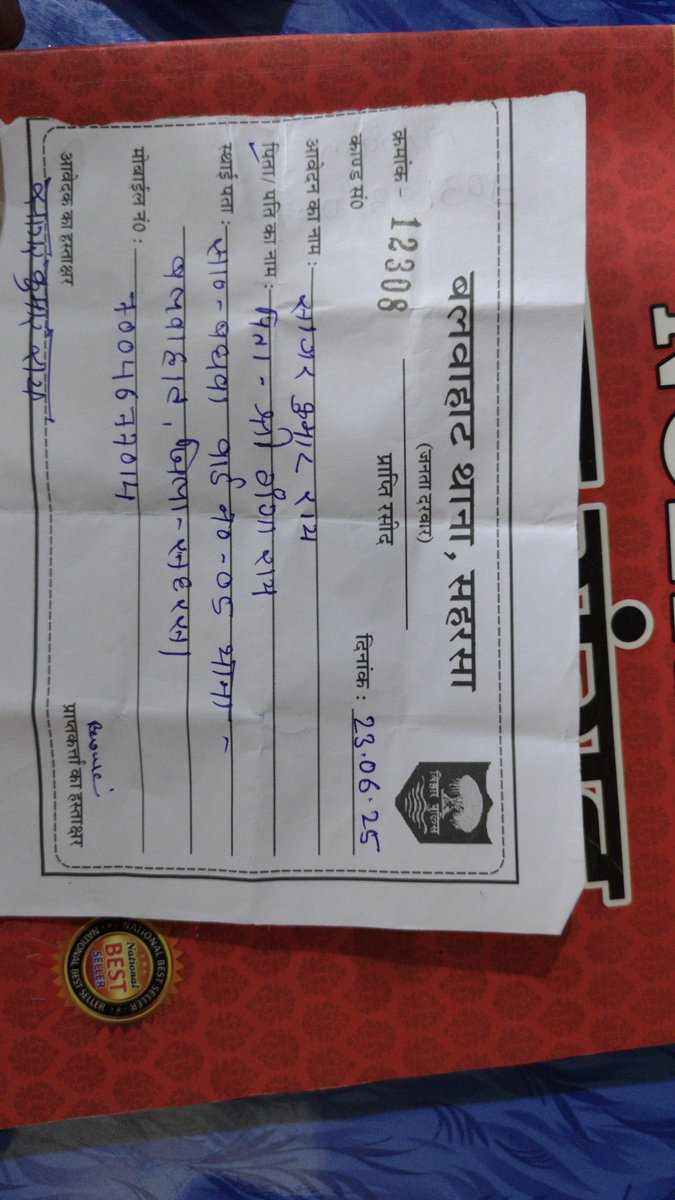 बलवाहाट थाना, सहरसा
(जनता दरबार)
बिहार पुलिस
क्रमांक - 12308
प्राप्ति रसीद
दिनांक : 23.06.25
काण्ड सं०
आवेदन का नाम : सागर कुमार राय
पिता/ पति का नाम : पिता - श्री गंगा राय
स्थाई पता : सा०- बधवा वार्ड न०-05 थाना -
बलवाहाट, जिला- सहरसा
मोबाईल नं० : 7004677014
आवेदक का हस्ताक्षर
सागर कुमार राय
प्राप्तकर्त्ता का हस्ताक्षर
NATIONAL BEST SELLER
National
BEST
SELLER
NATIONAL BEST SELLER